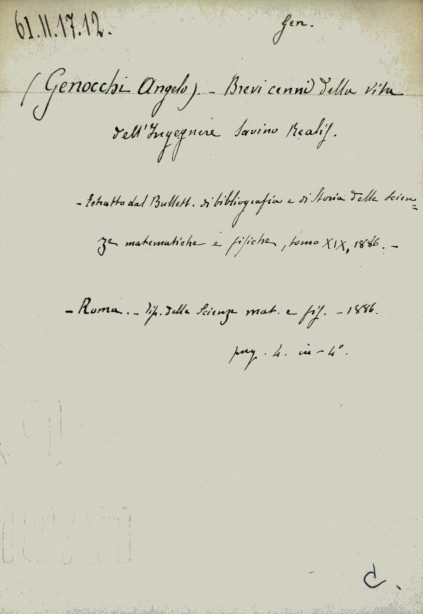 61.II.17.12.
Gen.
(Genocchi Angelo). - Brevi cenni della vita
dell'Ingegnere Savino Realis.
- Estratto dal Bullett. di bibliografia e di Storia delle scien=
ze matematiche e fisiche, tomo XIX, 1886. -
- Roma. - Tip. delle Scienze mat. e fis. - 1886.
pag. 4. in-4°.
C.